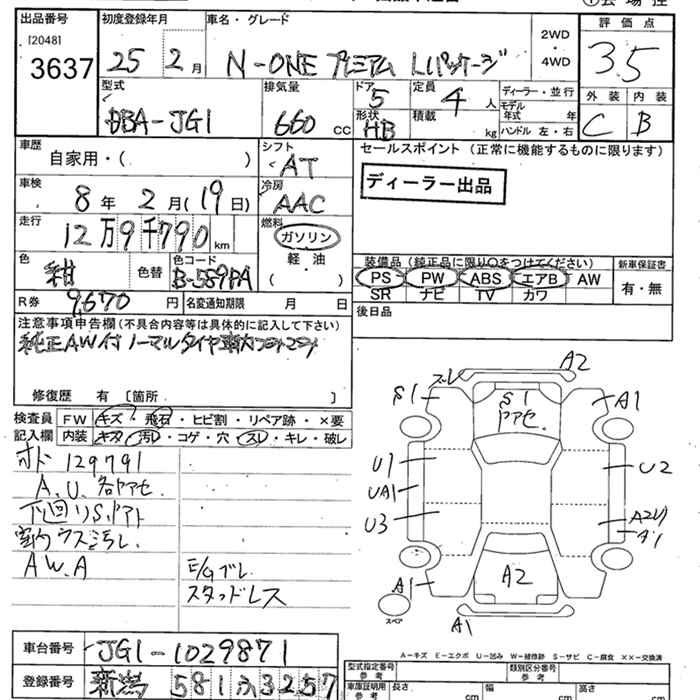 出品番号 初度登録年月 車名・グレード 評価点
[2048]
3637
25 2月
N-ONE プレミアム Lパッケージ
2WD
・
4WD
3.5
型式 排気量 ドア 定員 ディーラー・並行 外装 内装
DBA-JG1 660 CC 5 4人
モデル年式 年
形状 積載
HB kg ハンドル 左・右
C B
車歴 自家用・( )
シフト AT
セールスポイント(正常に機能するものに限ります)
ディーラー出品
車検 8年2月(19日)
冷房 AAC
走行 12万9千790km
燃料 ガソリン
軽油
( )
色 紺 色替 色コード B-589PA
装備品(純正品に限り○をつけてください) 新車保証書
PS PW ABS エアB AW
SR ナビ TV カワ
有・無
R券 9,670円 名変通知期限 月 日
後日品
注意事項申告欄(不具合内容等は具体的に記入して下さい)
純正AW付ノーマルタイヤ
修復歴 有 [箇所 ]
検査員 FW キズ・飛石・ヒビ割・リペア跡・×要
記入欄 内装 キズ・汚レ・コゲ・穴・スレ・キレ・破レ
オド 129791
A.U.各ヤアセ
下回りS.
室内ウス汚レ
A.W.A E/Gブレ
スタッドレス
ズレ A2
S1 S1 A1
ヤアセ
U1 U2
UA1
U3 A2U
A1
A1 A2
スペア A1
A-キズ E-エクボ U-凹み W-補修跡 S-サビ C-腐食 ××-交換済
車台番号 JG1-1029871
登録番号 新潟 581 ふ 3257
型式指定番号 参考 類別区分番号 参考
車庫証明用 参考 長さ cm 幅 cm 高さ cm